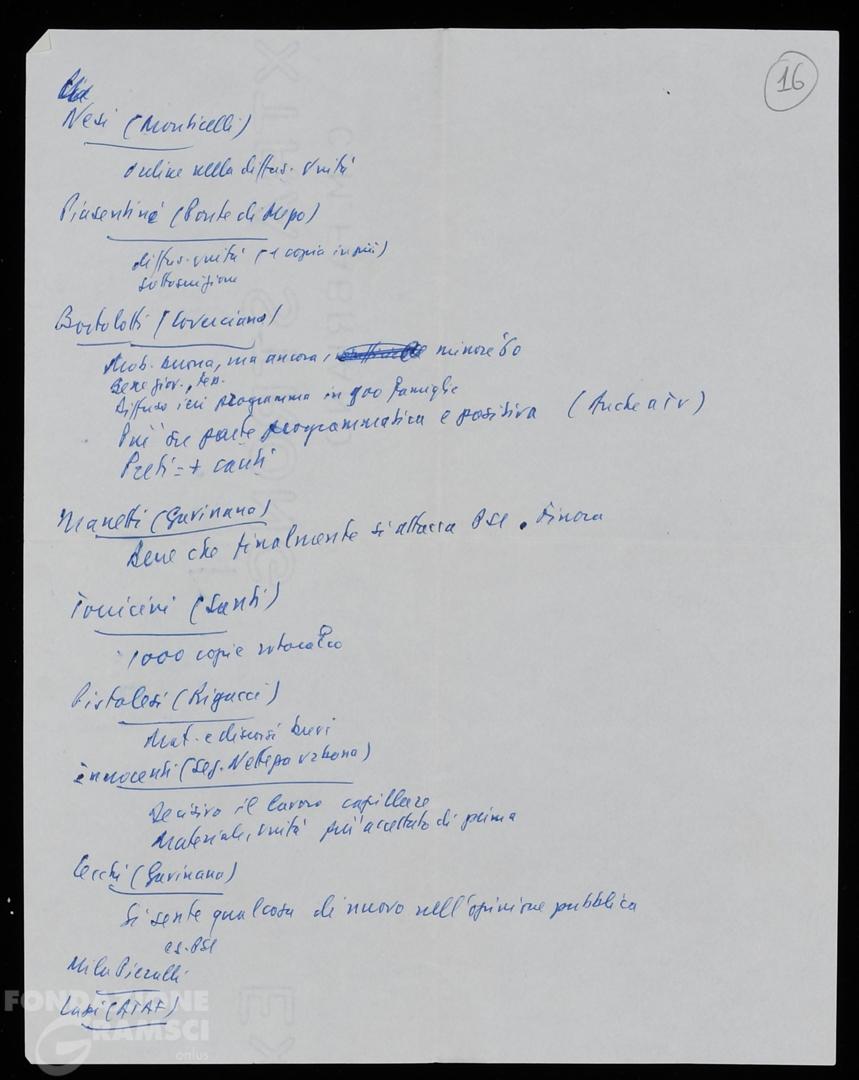 16
Nesi (Monticelli)
online nella diffus. Unità
Piasentini (Ponte di Mezzo)
diffus. unità (+1 copia in più)
sottoscrizione
Bortolotti (Coverciano)
Mob. buona, ma ancora, minore '60
Bene giov., fem.
Diffuso ieri programma in 900 famiglie
Più su parte programmatica e positiva (Anche a TV)
Preti = + cauti
Manetti (Gavinana)
Bene che finalmente si attacca PSI. Finora
(Santi)
1000 copie rotocalco
Pistolesi (Rigacci)
Mat. e discorsi brevi
Innocenti (Seg. Nettezza urbana)
Decisivo il lavoro capillare
Materiale, unità più accettato di prima
Cecchi (Gavinana)
Si sente qualcosa di nuovo nell'opinione pubblica
es. PSI
Mila Pieralli
Lapi (ATAF)
FONDAZIONE
GRAMSCI
onlus